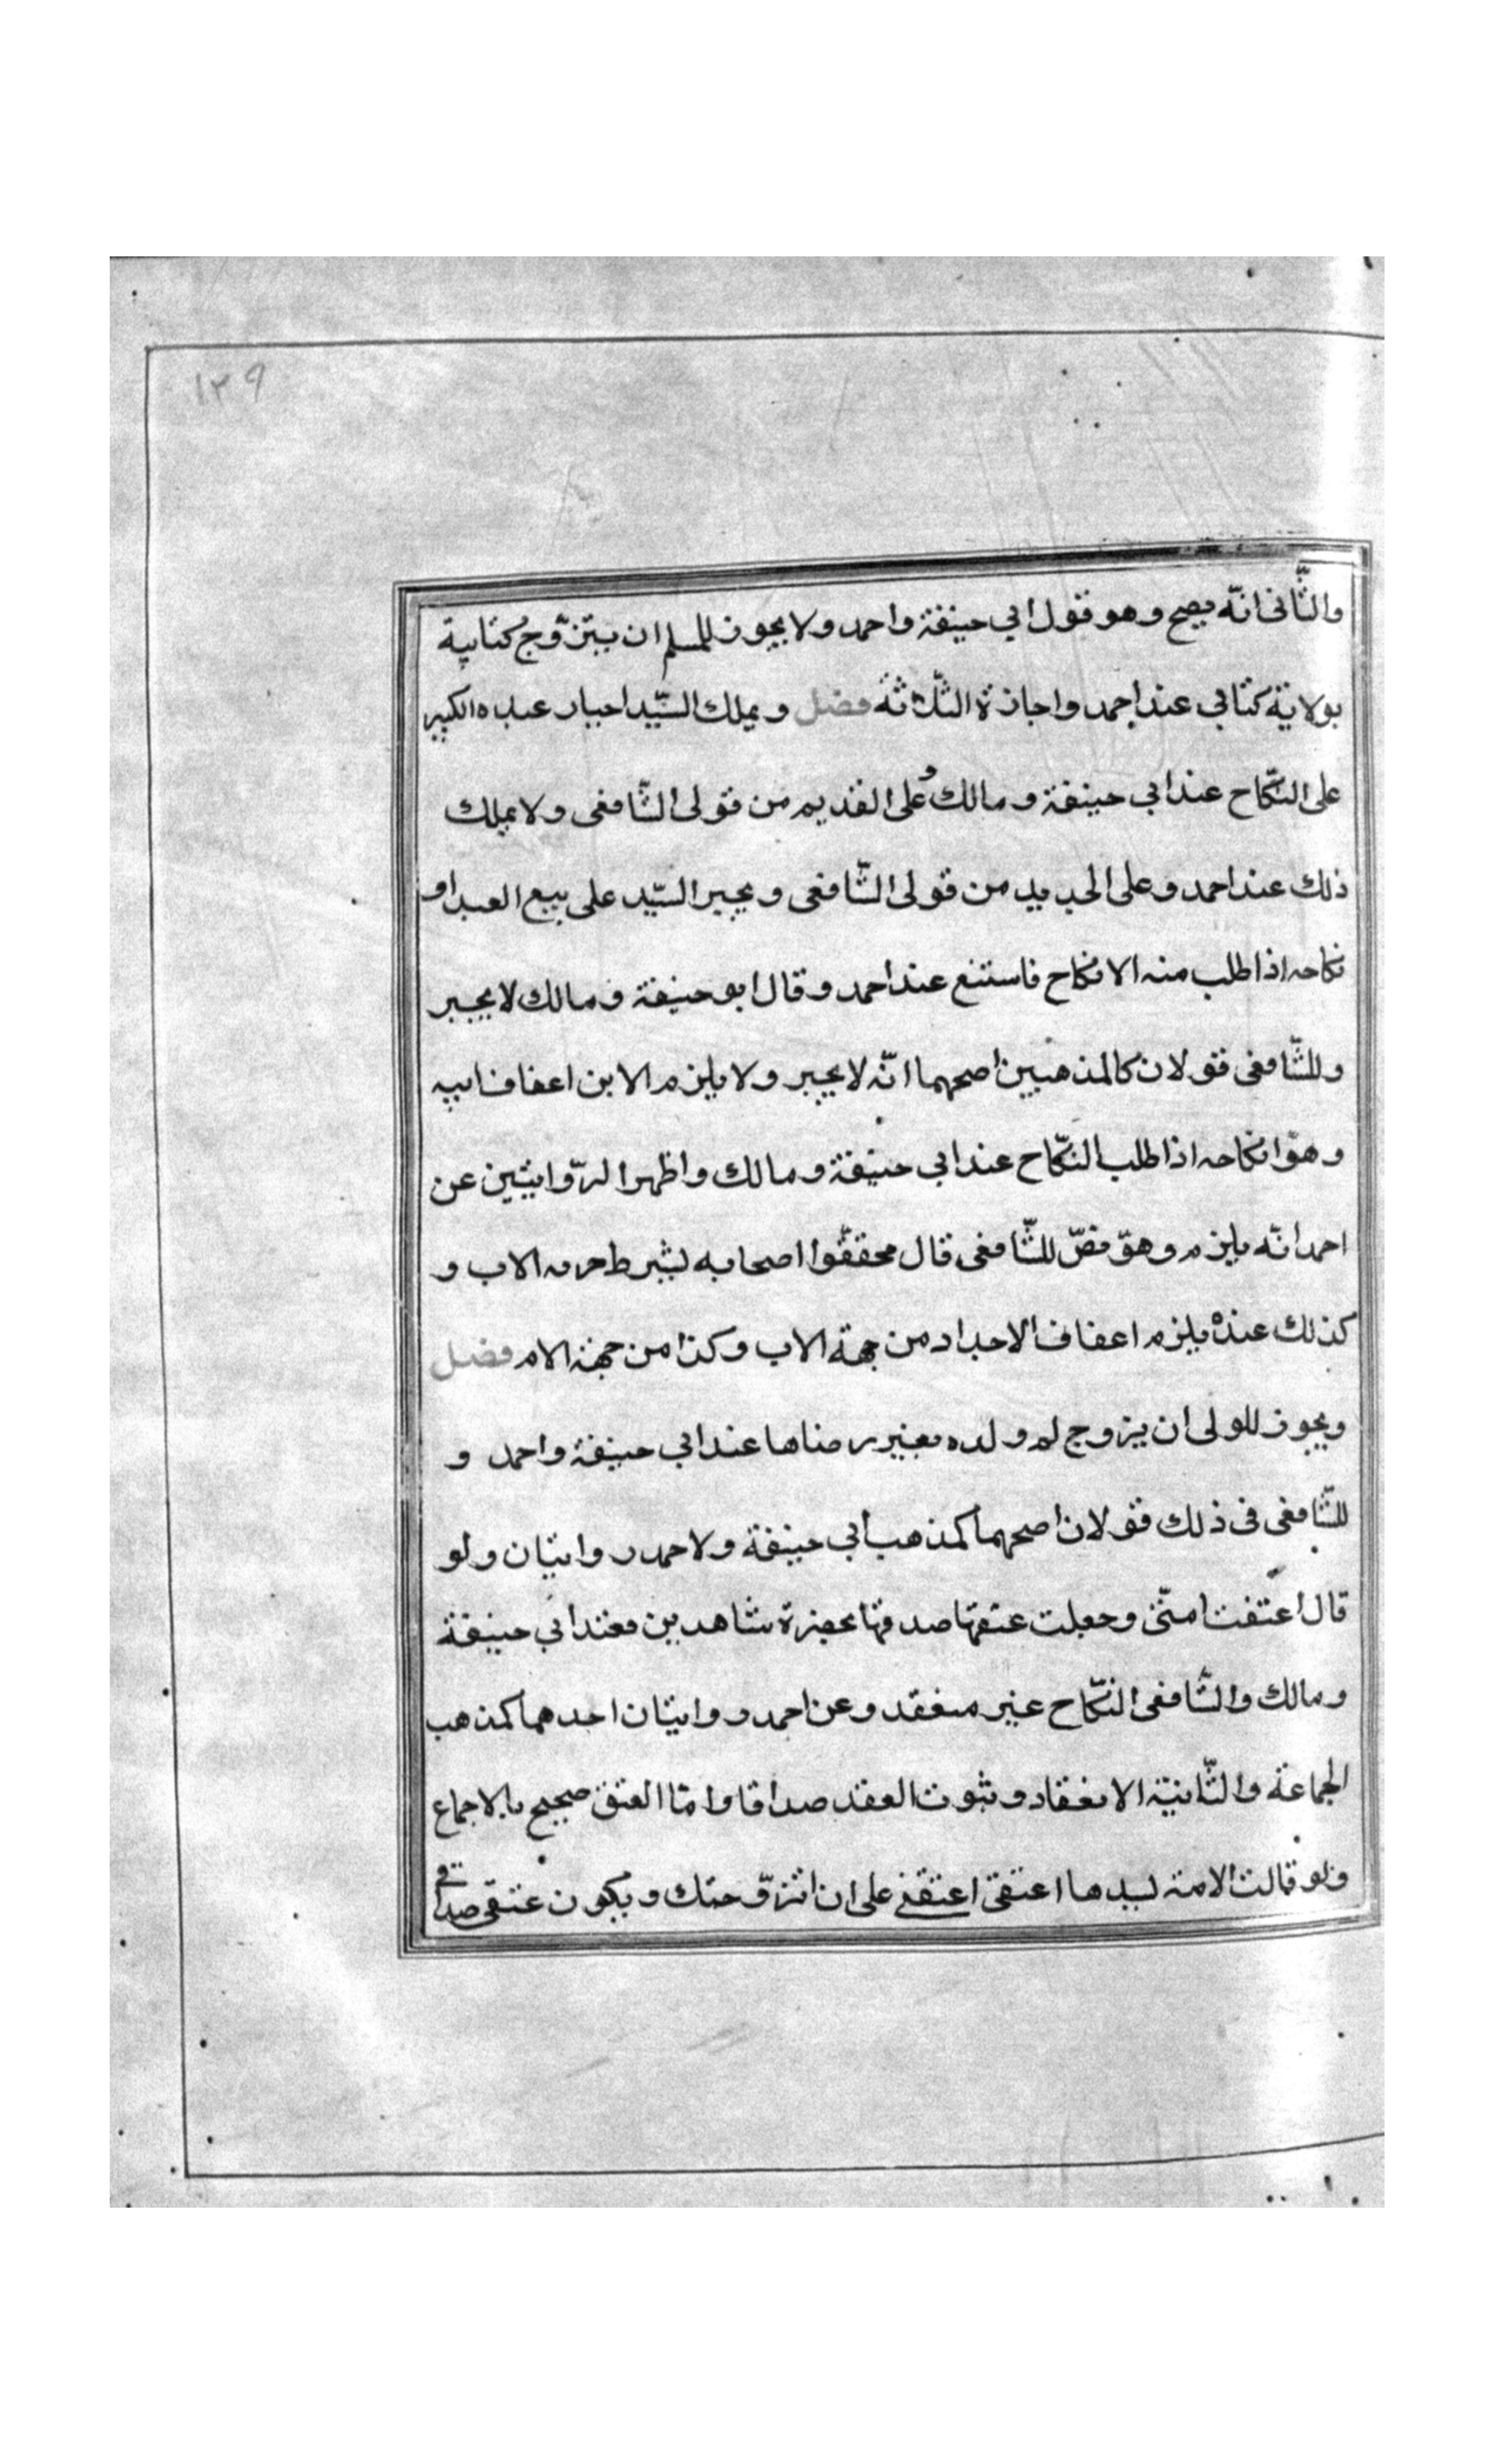 ١٢٩
والثّانى انّه يصح وهو قول ابي حنيفة واحمد ولا يجوز للمسلم ان يتزوّج كتابية
بولاية كتابي عند احمد واجازة الثّلاثة فصل ويملك السّيّد اجبار عبده الكبير
على النّكاح عند ابي حنيفة ومالك وعلى القديم من قولى الشّافعى ولا يملك
ذلك عند احمد وعلى الجديد من قولى الشّافعى ويجبر السّيّد على بيع العبد او
نكاحه اذا طلب منه الانكاح فاستنع عند احمد وقال ابو حنيفة ومالك لا يجبر
وللشّافعى قولان كالمذهبين اصحهما انّه لا يجبر ولا يلزم الابن اعفاف ابيه
وهوّ انكاحه اذا طلب النّكاح عند ابي حنيفة ومالك واظهر الرّوايتين عن
احمد انّه يلزم وهوّ نصّ للشّافعى قال محققّوا اصحابه بشرط حرمه الاب و
كذلك عنده يلزم اعفاف الاجداد من جهة الاب وكذا من جهة الام فصل
ويجوز للولى ان يزوج لم ولده بغير رضاها عند ابي حنيفة واحمد و
للشّافعى فى ذلك قولان اصحهما كمذهب ابي حنيفة ولاحمد روايتان ولو
قال اعتقت امتى وجعلت عتقها صدقها بحضرة شاهدين فعند ابي حنيفة
ومالك والشّافعى النّكاح غير منعقد وعن احمد روايتان احدهما كمذهب
الجماعة والثّانية الانعقاد وثبوت العقد صداقا وامّا العتق صحيح بالاجماع
ولو قالت الامة لسيدها اعتقى اعتقنى على ان اتزوّجتك ويكون عتقى صداقى